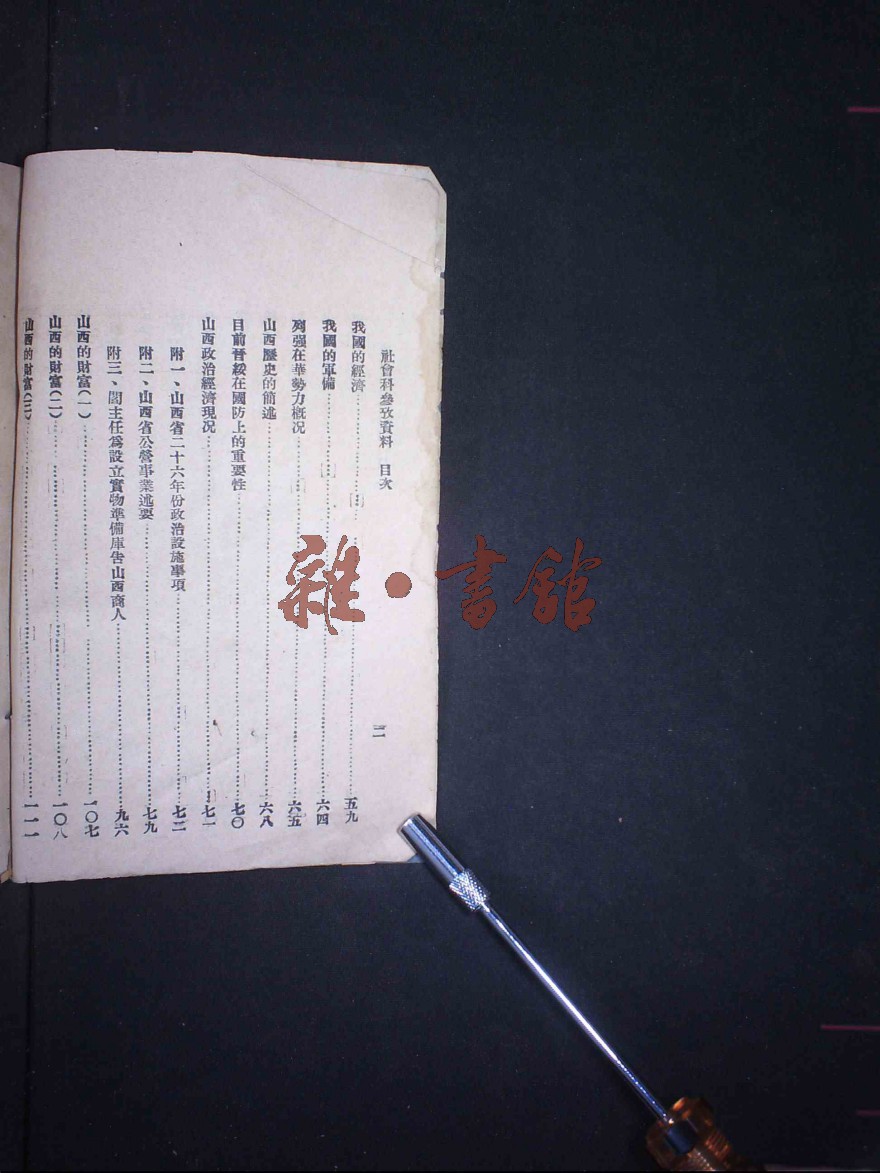 社會科參攷資料　目次
二
我國的經濟……五九
我國的軍備……六四
列强在華勢力槪況……六五
山西歷史的簡述……六八
目前晉綏在國防上的重要性……七〇
山西政治經濟現況……七一
附一、山西省二十六年份政治設施事項……七二
附二、山西省公營事業述要……七九
附三、閻主任爲設立實物準備庫吿山西商人……九六
山西的財富(一)……一〇七
山西的財富(二)……一〇八
山西的財富(三)……一一一
雜·書館